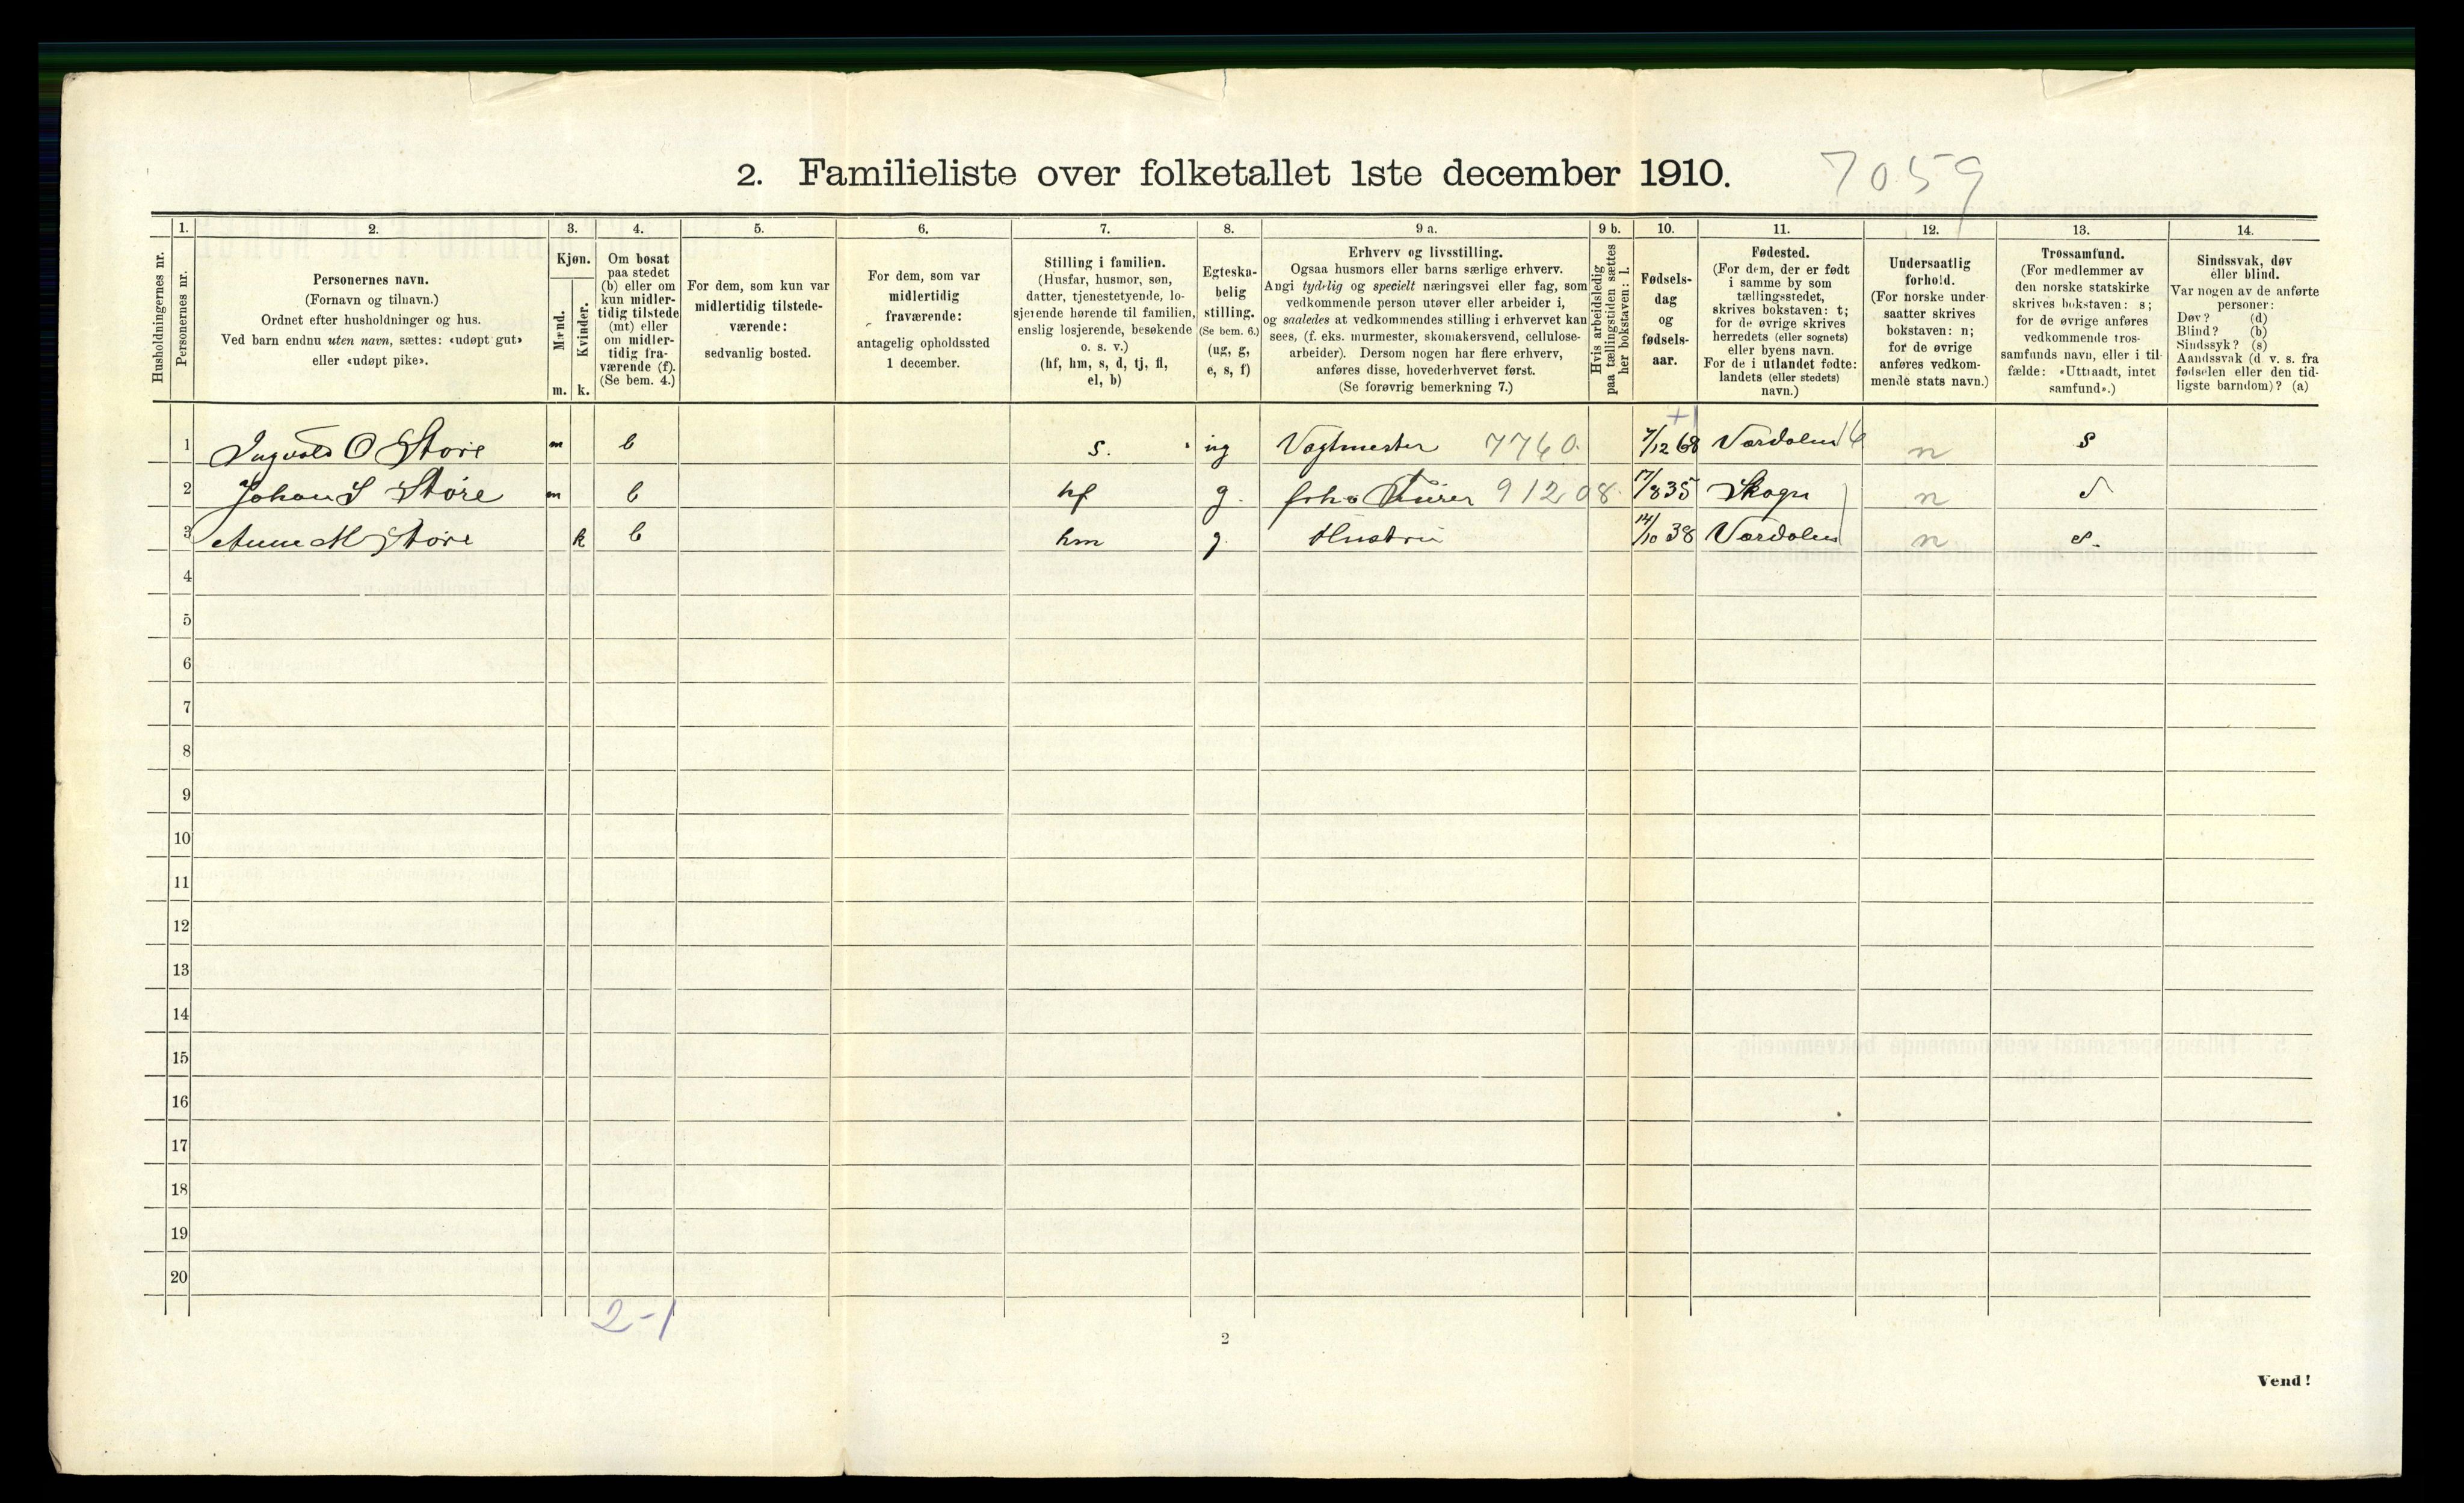 2. Familieliste over folketallet 1ste december 1910. 7059
Husholdningernes nr.
1.
Personernes nr.
2.
Personernes navn.
(Fornavn og tilnavn.)
Ordnet efter husholdninger og hus.
Ved barn endnu uten navn, sættes: «udøpt gut»
eller «udøpt pike».
3.
Kjøn.
Mænd.
m.
Kvinder.
k.
4.
Om bosat
paa stedet
(b) eller om
kun midler-
tidig tilstede
(mt) eller
om midler-
tidig fra-
værende (f).
(Se bem. 4.)
5.
For dem, som kun var
midlertidig tilstede-
værende:
sedvanlig bosted.
6.
For dem, som var
midlertidig
fraværende:
antagelig opholdssted
1 december.
7.
Stilling i familien.
(Husfar, husmor, søn,
datter, tjenestetyende, lo-
sjerende hørende til familien,
enslig losjerende, besøkende
o. s. v.)
(hf, hm, s, d, tj, fl,
el, b)
8.
Egteska-
belig
stilling.
(Se bem. 6.)
(ug, g,
e, s, f)
9 a.
Erhverv og livsstilling.
Ogsaa husmors eller barns særlige erhverv.
Angi tydelig og specielt næringsvei eller fag, som
vedkommende person utøver eller arbeider i,
og saaledes at vedkommendes stilling i erhvervet kan
sees, (f. eks. murmester, skomakersvend, cellulose-
arbeider). Dersom nogen har flere erhverv,
anføres disse, hovederhvervet først.
(Se forøvrig bemerkning 7.)
9 b.
Hvis arbeidsledig
paa tællingstiden sættes
her bokstaven: l.
10.
Fødsels-
dag
og
fødsels-
aar.
11.
Fødested.
(For dem, der er født
i samme by som
tællingsstedet,
skrives bokstaven: t;
for de øvrige skrives
herredets (eller sognets)
eller byens navn.
For de i utlandet fødte:
landets (eller stedets)
navn.)
12.
Undersaatlig
forhold.
(For norske under-
saatter skrives
bokstaven: n;
for de øvrige
anføres vedkom-
mende stats navn.)
13.
Trossamfund.
(For medlemmer av
den norske statskirke
skrives bokstaven: s;
for de øvrige anføres
vedkommende tros-
samfunds navn, eller i til-
fælde: «Uttraadt, intet
samfund».)
14.
Sindssvak, døv
eller blind.
Var nogen av de anførte
personer:
Døv? (d)
Blind? (b)
Sindssyk? (s)
Aandssvak (d. v. s. fra
fødselen eller den tid-
ligste barndom)? (a)
1 Ingvald O Støre m b s. ug Vagtmester 7760 7/12 68 Værdalen n s
2 Johan S Støre m b hf g. 91208 17/8 35 Skogn n s
3 Anne M Støre k b hm g. Hustru 14/10 38 Værdalen n s.
4
5
6
7
8
9
10
11
12
13
14
15
16
17
18
19
20
2-1
2
Vend!